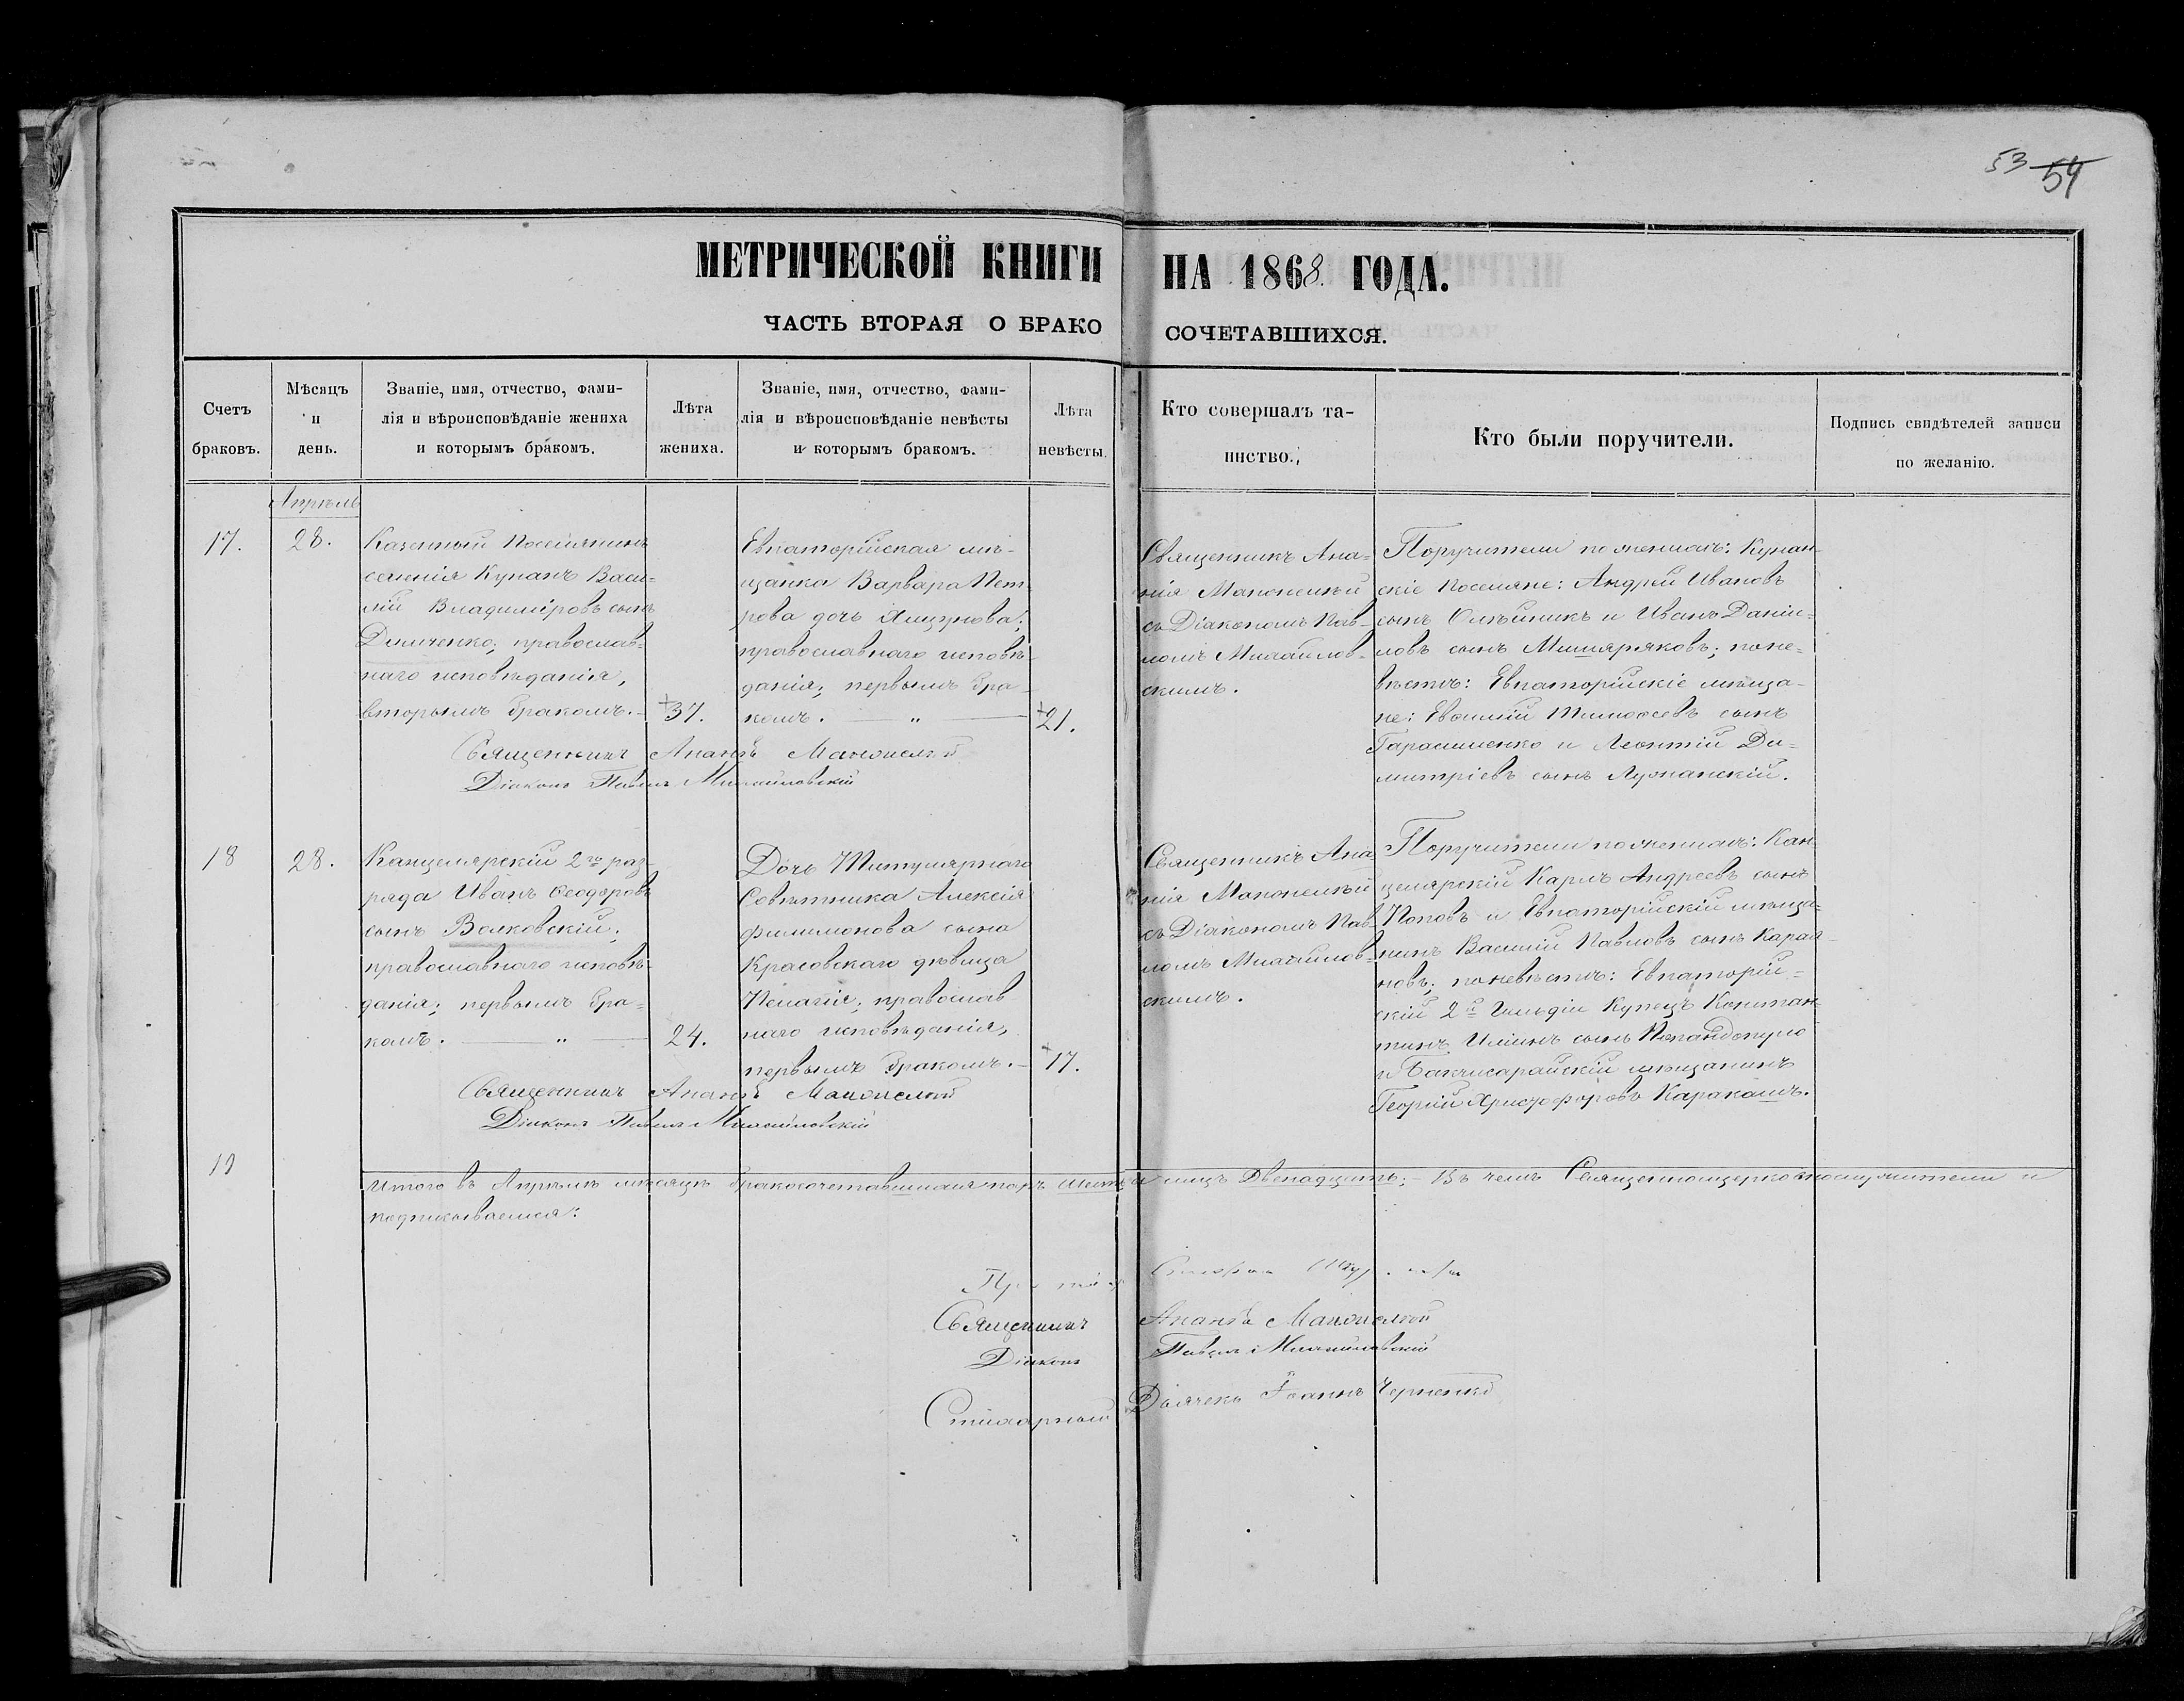 53 54
МЕТРИЧЕСКОЙ КНИГИ НА 1868 ГОДА.
ЧАСТЬ ВТОРАЯ О БРАКО СОЧЕТАВШИХСЯ.
Счетъ
браковъ.
Мѣсяцъ
и
день.
Званіе, имя, отчество, фами-
лія и вѣроисповѣданіе жениха
и которымъ бракомъ.
Лѣта
жениха.
Званіе, имя, отчество, фами-
лія и вѣроисповѣданіе невѣсты
и которымъ бракомъ.
Лѣта
невѣсты.
Кто совершалъ та-
инство.
Кто были поручители.
Подпись свидѣтелей записи
по желанію.
Апрѣль
17.
28.
Казенный Поселянинъ
селенія Кунанъ Васи-
лій Владиміровъ сынъ
православ-
наго исповѣданія,
вторымъ бракомъ.
37.
Евпаторійская мѣ-
щанка Варвара Пет-
рова дочь
православнаго исповѣ-
данія; первымъ бра-
комъ. — „ —
21.
Священникъ Ана-
нія
съ Діакономъ Пав-
ломъ Михайлов-
скимъ.
Поручители по женихѣ: Кунан-
скіе Поселяне: Андрей Ивановъ
сынъ Олѣйникъ и Иванъ Даніи-
ловъ сынъ по не-
вѣстѣ: Евпаторійскіе мѣща-
не: Тимоѳеевъ сынъ
Гарасименко и Леонтій Ди-
митріевъ сынъ
Священникъ Ананій
Діаконъ Павелъ Михайловскій
18
28.
Канцелярскій 2го раз-
ряда Иванъ Ѳеодоровъ
сынъ Волковскій;
православнаго исповѣ-
данія; первымъ бра-
комъ. — „ —
24.
Дочь Титулярнаго
Совѣтника Алексія
Филимонова сына
Красовскаго дѣвица
Пелагія; православ
наго исповѣданія,
первымъ бракомъ. —
17.
Священникъ Ана
нія
съ Діакономъ Пав
ломъ Михайлов-
скимъ.
Поручители по женихѣ: Кан
целярскій Карлъ Андреевъ сынъ
Поповъ и Евпаторійскій мѣща-
нинъ Василій Павловъ сынъ
новъ; по невѣстѣ: Евпаторій-
скій 2й Гильдіи Купецъ Констан-
тинъ Ильинъ сынъ Попандопуло
и Бахчисарайскій мѣщанинъ
Георгій Христофоровъ Каракашъ.
Священникъ Ананій
Діаконъ Павелъ Михайловскій
19
Итого въ Апрѣлѣ мѣсяцѣ бракосочетавшихся паръ шесть а лицъ Двенадцать; — Въ чемъ Священноцерковнослужители и
подписываемся:
Священникъ Ананій
Діаконъ Павелъ Михайловскій
Стихарный Дьячекъ Іоаннъ Черненко